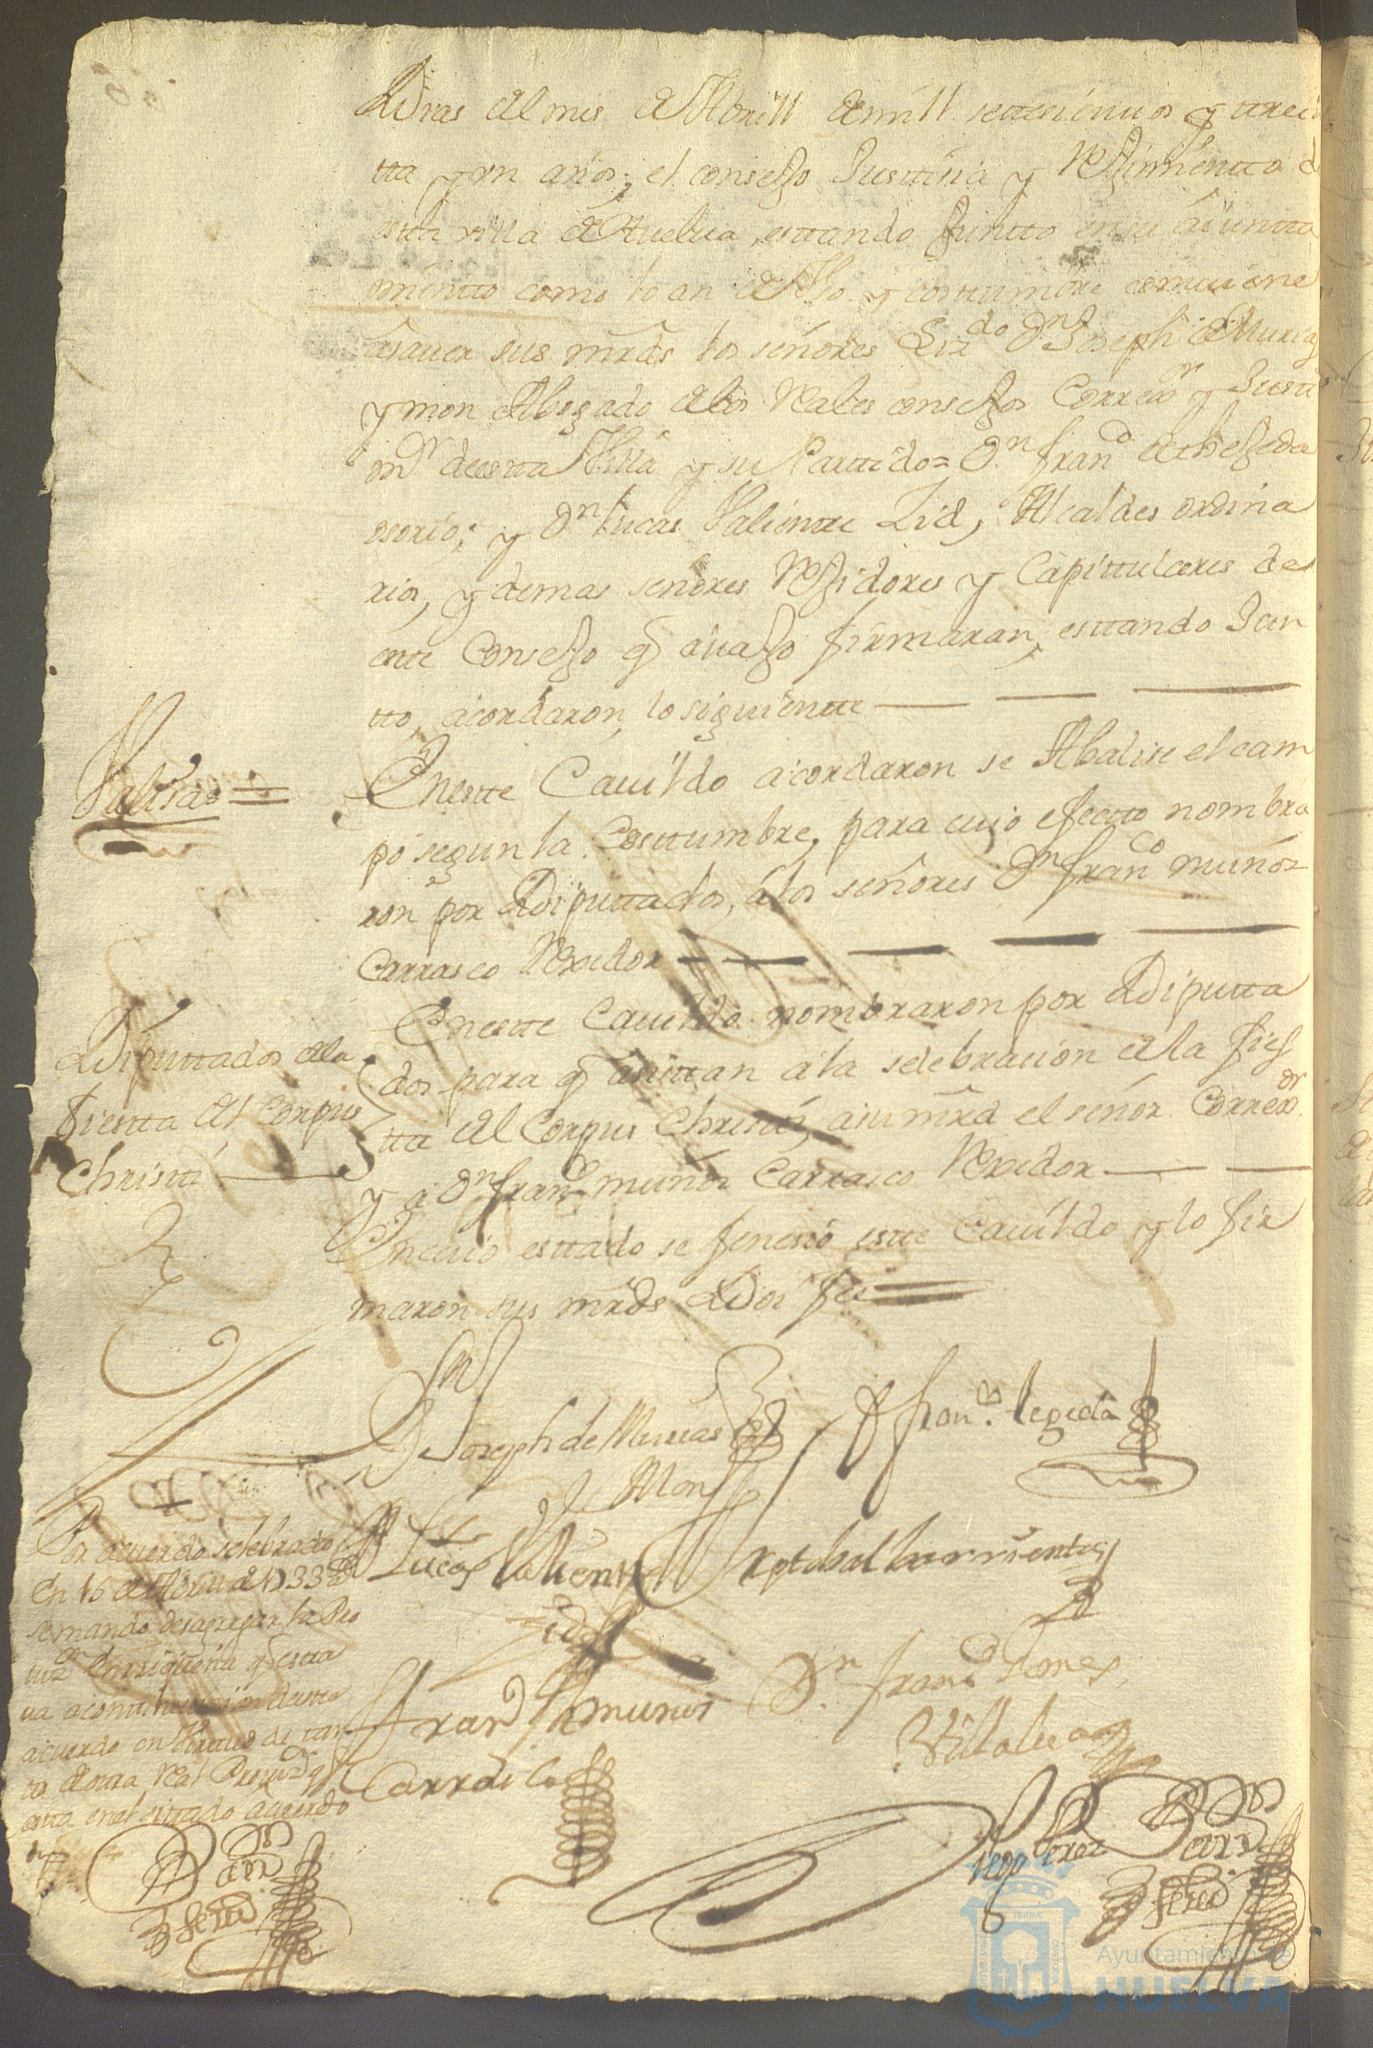 Dias del mes de Abrill de mill settesienttos y trein
tta y un años, el consejo Justtisia y Rejimientto de
estta villa de Huelva, esttando juntto en su aiuntta
mientto como lo an de Vso y costtumbre combiene
asauer sus mrds los señores Lizdo Dn Joseph de Murias
y mon Abogado de los Reales consejos Correxor y Justtia
mr de estta Villa y su Parttido = Dn Franco de thejeda
osorio; y Dn Lucas Valientte Zid, Alcaldes ordina
rios, y demas señores Rejidores y Capittulares de
estte Consejo q auajo firmaran, esttando Jun
tto, acordaron, lo siguientte
Valisao =
En estte Cauildo acordaron se Abalise el cam
po segun la Costtumbre, para cuio efectto nombra
ron por Diputtados, a los señores Dn Franco muños
Carrasco Rexidor
Diputtados de la
fiestta del Corpus
Christi
En estte Cauildo nombraron por Diputta
dos para q asistan a la selebracion de la fies
tta del Corpus Christi, a su mrd el señor Correxor
y a Dn Franco muños Carrasco Rexidor
En cuio esttado se fenesio estte Cauildo y lo fir
maron sus mrds Doi fee
Dn Joseph de Murias
y Mon
D Franco tegeda
Lucas Valiente
Zid
Xptobal barrientos
Franco muños
Carrasco
Dn Franco Jones
Villalua
Diego Perez Barr
Por acuerdo selebrado
en 15 de Abrill de 1733
se mando desagregar la Rl
Enrriqueña q estta
ua a continuasion de estte
acuerdo en
de otra Real Provon q
estta en el sittado acuerdo
Ayuntamiento de
HUELVA